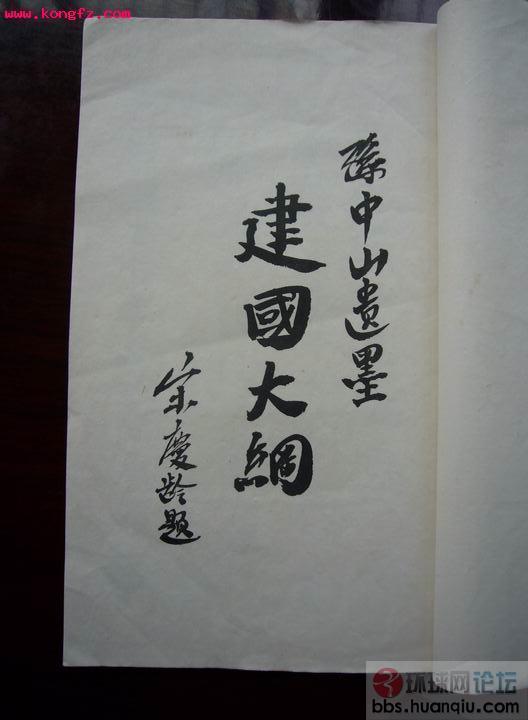 www.kongfz.com
孫中山遺墨
建國大綱
宋慶齡题
环球网论坛
bbs.huanqiu.com